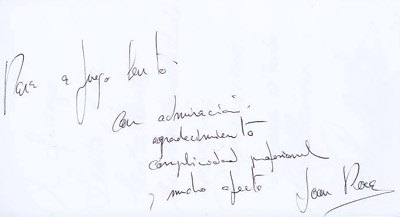 Para a fuego lento.
Con admiración.
agradecimiento
complicidad profesional
y mucho afecto Joan Roca